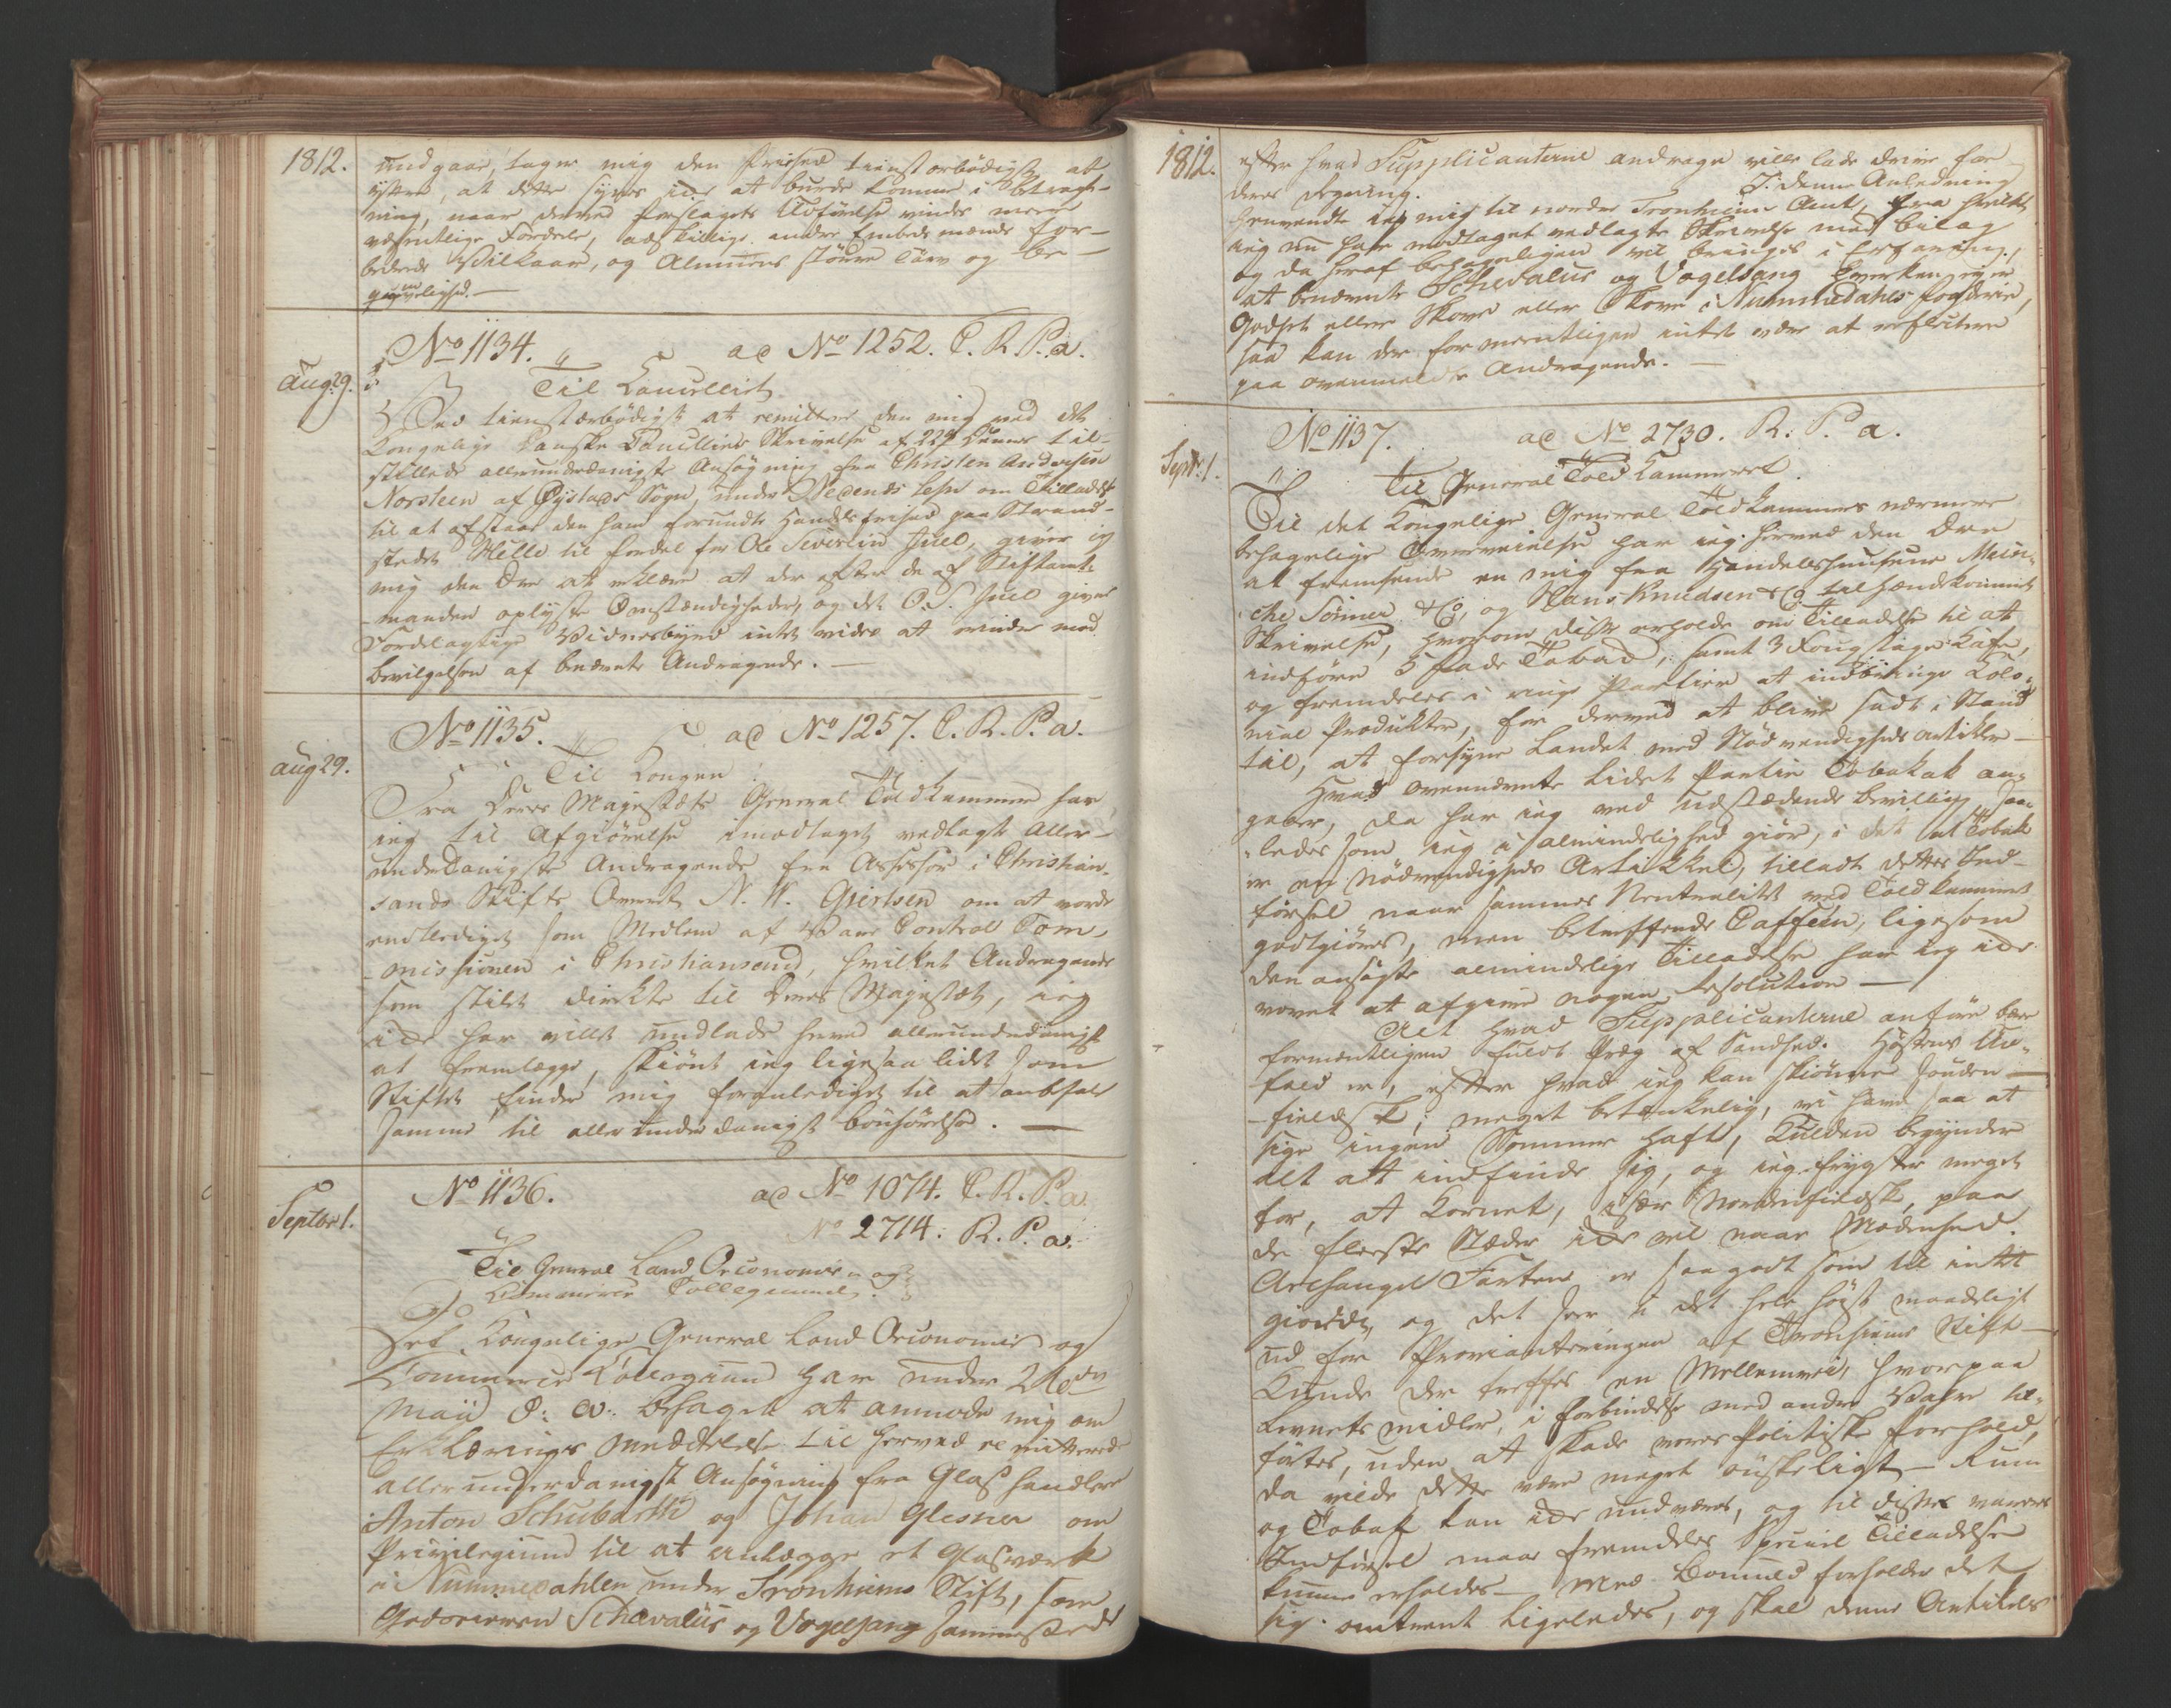 1812.
undgaaer, tager mig den Frihed tienstærbødigst at
yttre, at dette synes icke at burde komme i Betragt-
ning, naar derved Forslagets Udførelse vindes meere
væsentlige Fordeele, adskillige andre Embedsmænds for-
bedrede Vilkaar, og Almuens større Tarv og Be-
qvemmelighed.
No 1134. ad No 1252. C. R. P. a.
Aug: 29.
Til Cancelliet
Ved tienstærbødigst at remittere den mig med det
Kongelige Danske Cancellies Skrivelse af 22de Hujus til-
stillede allerunderdanigste Ansøgning fra Christen Andersen
Norsteen af Øjstads Sogn, under Nedenæs Lehn om Tilladelse
til at afstaae den ham forundte Handelsfrihed paa Strand-
stedet Helle til Fordel for Ole Severin Juel, giver jeg
mig den Ære at erklære at der efter de af Stiftamt-
manden oplyste Omstændigheder, og det O. S. Juel givne
Fordelagtige Vidnesbyrd intet videre at erindre mod
Bevilgelsen af benævnte Andragende.
No 1135. ad No 1257. C. R. P. a.
Aug 29.
Til Kongen!
Fra Deres Majestæts General Toldkammer har
jeg til Afgiørelse imodtaget vedlagte Aller-
underdanigste Andragende fra Assessor i Christian-
sands Stifts Overret N. W. Giertsen om at vorde
entlediget som Medlem af Vare Control Com-
missionen i Christiansand, hvilket Andragende
som stilet directe til Deres Majestæt, jeg
icke har villet undlade herved allerunderdanigst
at fremlægge, skiønt jeg ligesaa lidet som
Stiftet finder mig foranlediget til at anbefale
samme til allerunderdanigst Bønhørelse.
No 1136. ad No 1074. C. R. P. a.
No 2714. R. P. a.
Septbr 1.
Til General Land Oeconomie og
Commerce Collegium.
Det Kongelige General Land Oeconomie og
Commerce Collegium har under 26de
Maii d: a: behaget at anmode mig om
Erklærings Meddelelse til herved remitterede
allerunderdanigst Ansøgning fra Glashandler
Anton Schubarth og Johan Glesner om
Privilegium til at anlægge et Glasværk
i Nummedahlen under Tronhiems Stift, som
Godseierne Schavalius og Vogelsang sammesteds
1812.
efter hvad Supplicanterne andrage ville lade drive for
deres Regning. I denne Anledning
henvendte jeg mig til nordre Tronhiems Amt, fra hvilket
jeg nu har modtaget vedlagte Skrivelse med Bilag
og da heraf behageligen vil bringes i Erfaring,
at benævnte Schevalius og Vogelsang hverken eyer
Godset eller Skove eller Skove i Nummedahls Fogderie,
saa kan der formeentligen intet være at reflectere
paa ovenmeldte Andragende.
No 1137. ad No 2730. R. P. a.
Septr: 1.
Til General Told Kammeret
Til det Kongelige General Toldkammers nærmere
behagelige Overveielse har jeg herved den Ære
at fremsende en mig fra Handelshuusene Mein-
cke Sønner & Co, og Hans Knudsen & Co tilhændekommet
Skrivelse, hvorom disse anholde om Tilladelse til at
indføre 5 Fade Tobak, samt 3 Foustager Kaffe,
og fremdeles i ringe Partier at indbringe Colo-
nial Produkter, for derved at blive sadt i Stand
til, at forsyne Landet med Nødvendigheds artikler
Hvad ovennævnte lidet Partie Tobakak an-
gaaer, da har jeg ved udstædende Bevilling, saa-
ledes som jeg i Almindelighed giør, i det at Tobak
er en Nødvendigheds Artikkel, tilladt dettes Ind-
førsel naar sammes Neutralitet ved Toldkammeret
godtgiøres, men betreffende Caffeen, ligesom
den ansøgte almindelige Tilladelse har jeg icke
vovet at afgive nogen Resolution —
Alt hvad Supplicanterne anføre bær
formeentligen fuldt Præg af Sandhed. Høstens Ud-
fald er, efter hvad jeg kan skiønne sønden-
fieldsk, meget betænkelig, vi have saa at
sige ingen Sommer haft, Kulden begynder
alt at indfinde sig, og jeg frygter meget
for, at Kornet, især Nordenfieldsk, paa
de fleeste Stæder icke vil naae Modenhed.
Archangel Farten er saa godt som til intet
giordt, og det seer i det hele høist maadeligt
ud for Provianteringen af Tronhiems Stift
Kunde der treffes en Mellemvei, hvorpaa
Livnets midler, i Forbindelse med andre Vahre til-
førtes, uden at skade vores Politiske Forhold,
da vilde dette være meget ønskeligt — Rum
og Tobak kan icke undværes, og til disses varers
Indførsel maae fremdeles Special Tilladelse
kunne erholdes — Med Bomuld forholder det
sig omtrent ligeledes, og skal denne Artikels